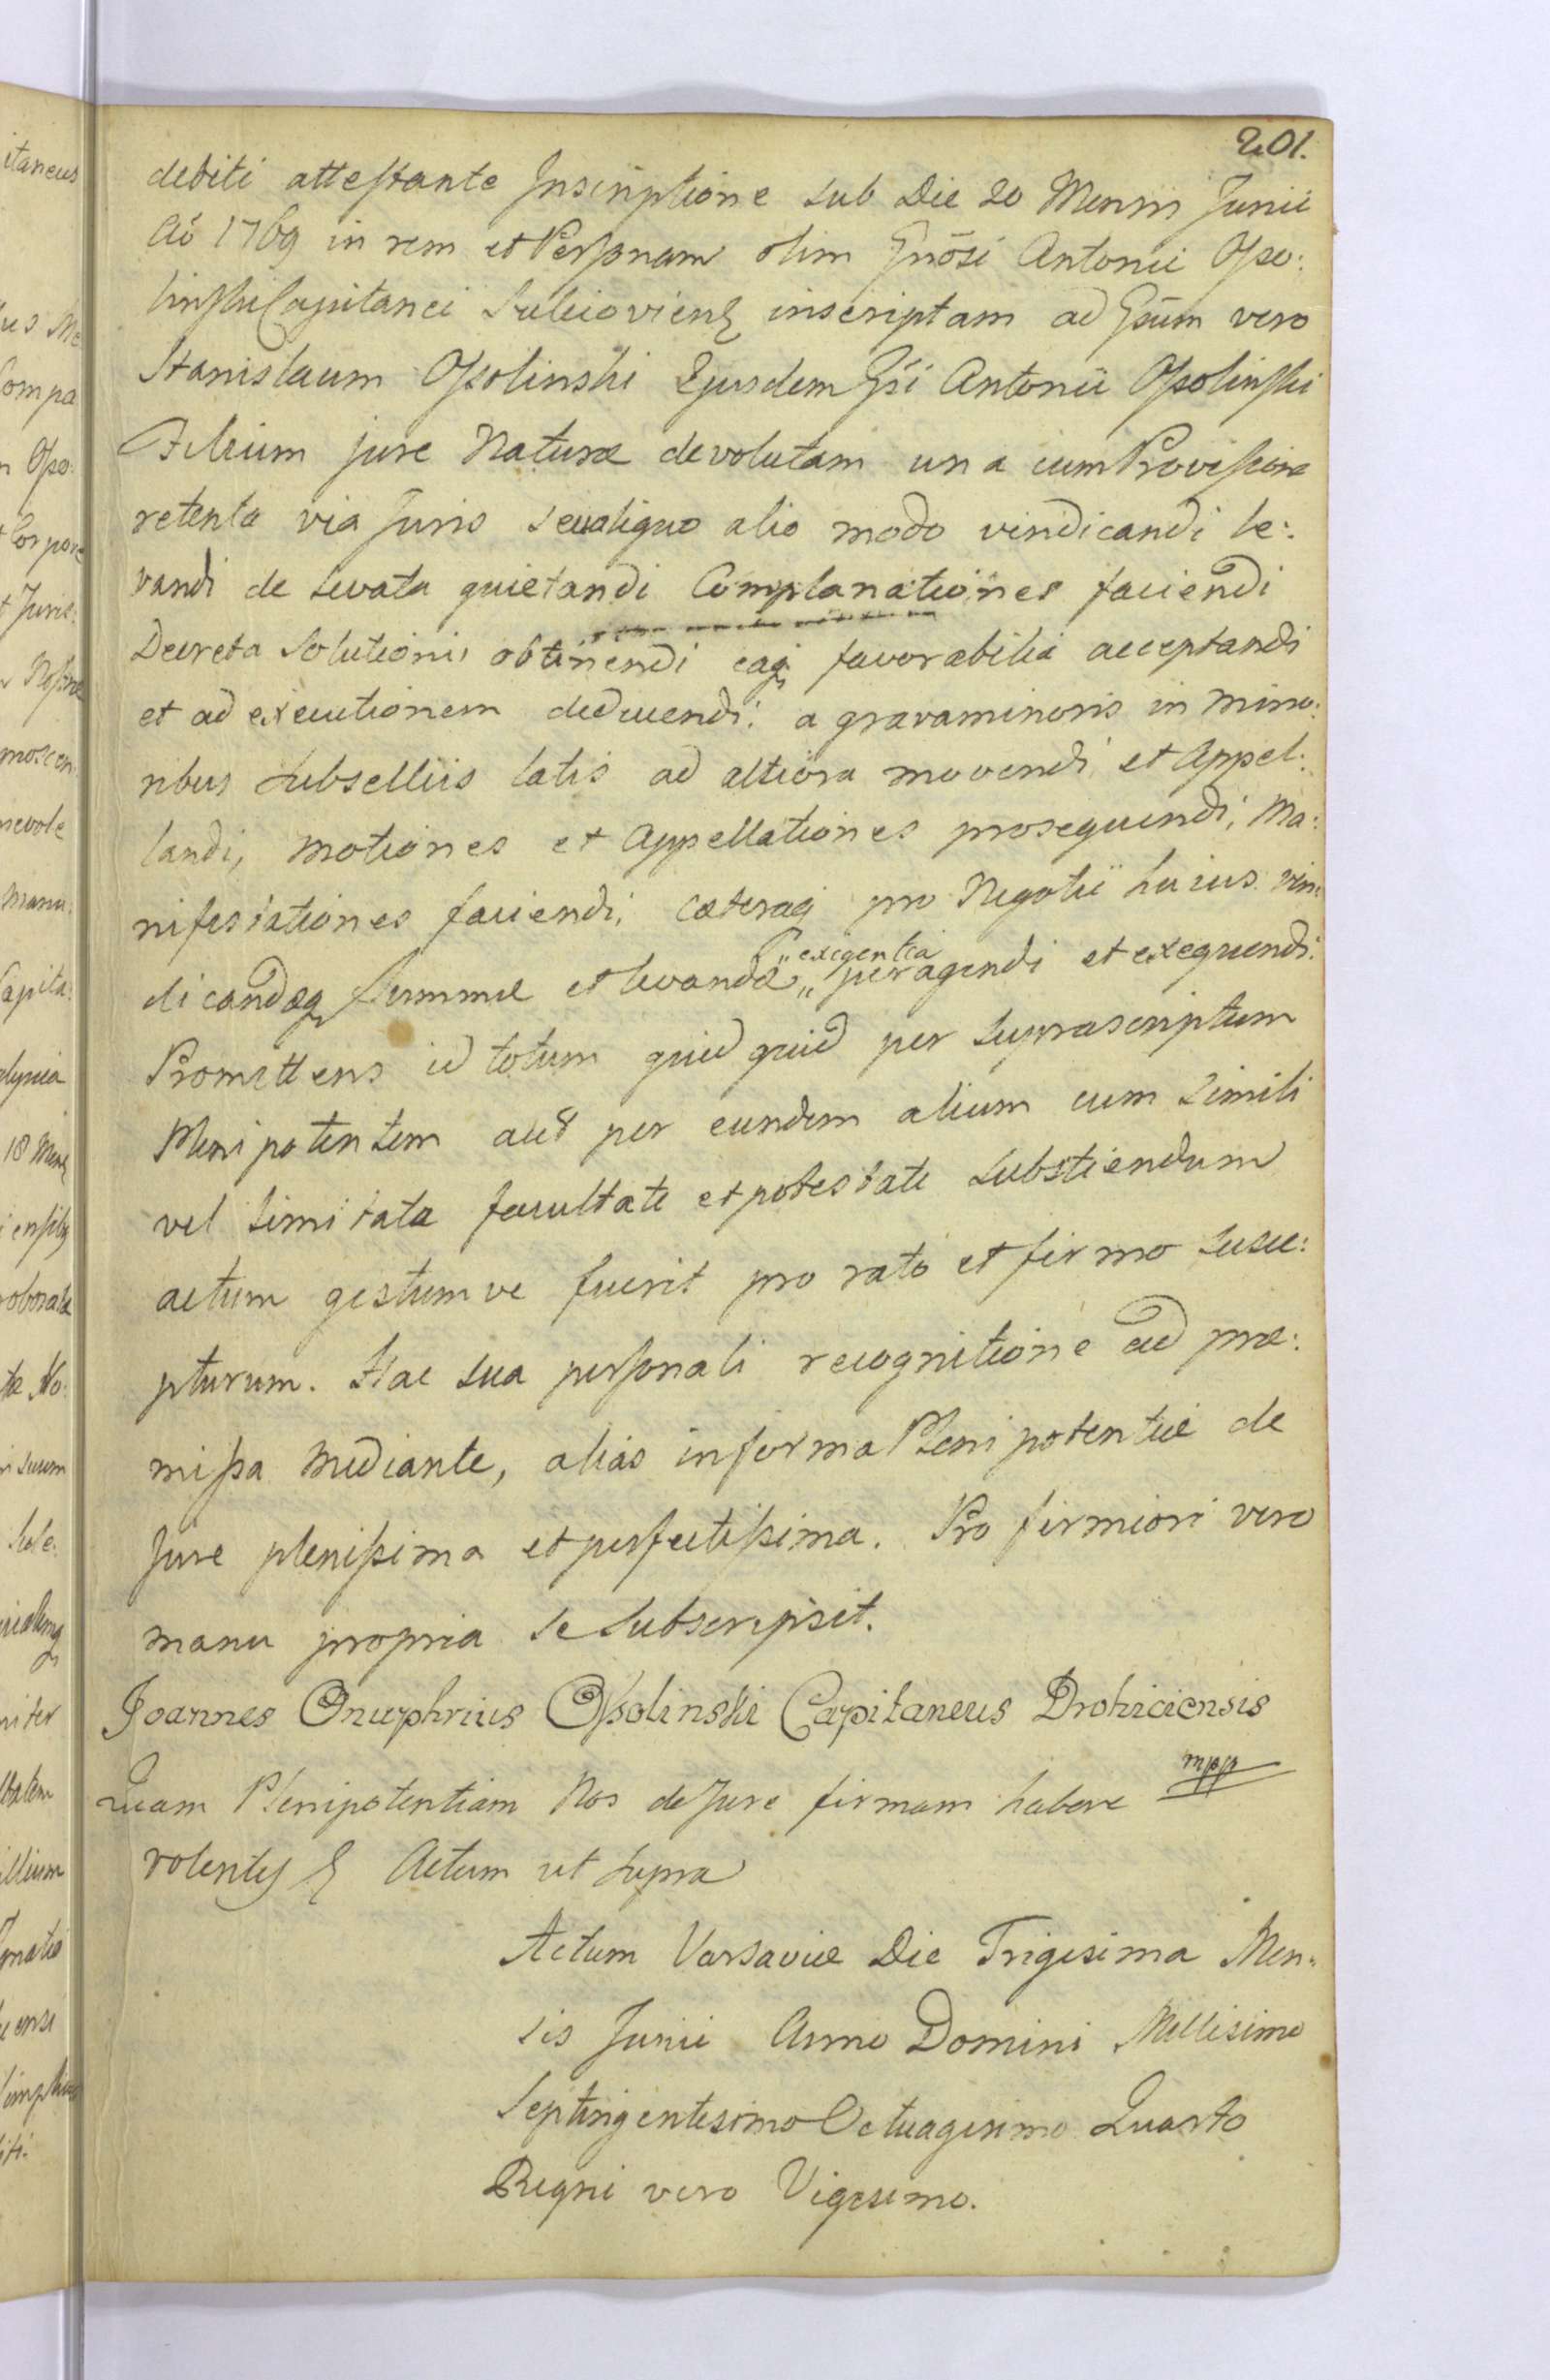 201.
debiti attestante Inscriptione sub Die 20 Mensis Junii
Aō 1769 in rem et Personam olim Gnōsi Antonii Osso:
linski Capitanei Sulieioviens inscriptam ad Gsūm vero
Stanislaum Ossolinski Ejusdem Gsi Antonii Ossolinski
Filium jure Naturæ devolutam una cum Provisione
retenta via Juris seu aliquo alio modo vindicandi le:
vandi de levata quietandi Complanationes faciendi
Decreta Solutionis obtinendi eaq favorabilia acceptandi
et ad executionem deducendi: a gravaminoris in mino:
ribus Subselliis latis ad altiora movendi et Appel:
landi, motiones et Appellationes prosequendi, Ma:
nifestationes faciendi, cæteraq pro Negotii huius vin:
dicandæq Summæ et levandæ „ exigentia „ peragendi et exequendi.
Promittens id totum quidquid per Suprascriptum
Plenipotentem aut per eundem alium cum simili
vel limitata facultate et potestate substiendum
actum gestumve fuerit pro rato et firmo susce:
pturum. Hac sua personali recognitione ad præ:
missa mediante, alias in forma Plenipotentiæ de
Jure plenissima et perfectissima. Pro firmiori vero
manu propria se subscripsit.
Joannes Onuphrius Ossolinski Capitaneus Drohiciensis
mpp
Quam Plenipotentiam Nos de Jure firmam habere
volentes Actum ut supra
Actum Varsaviæ Die Trigesima Men:
sis Junii Anno Domini Millesimo
Septingentesimo Octuagesimo Quarto
Regni vero Vigesimo.